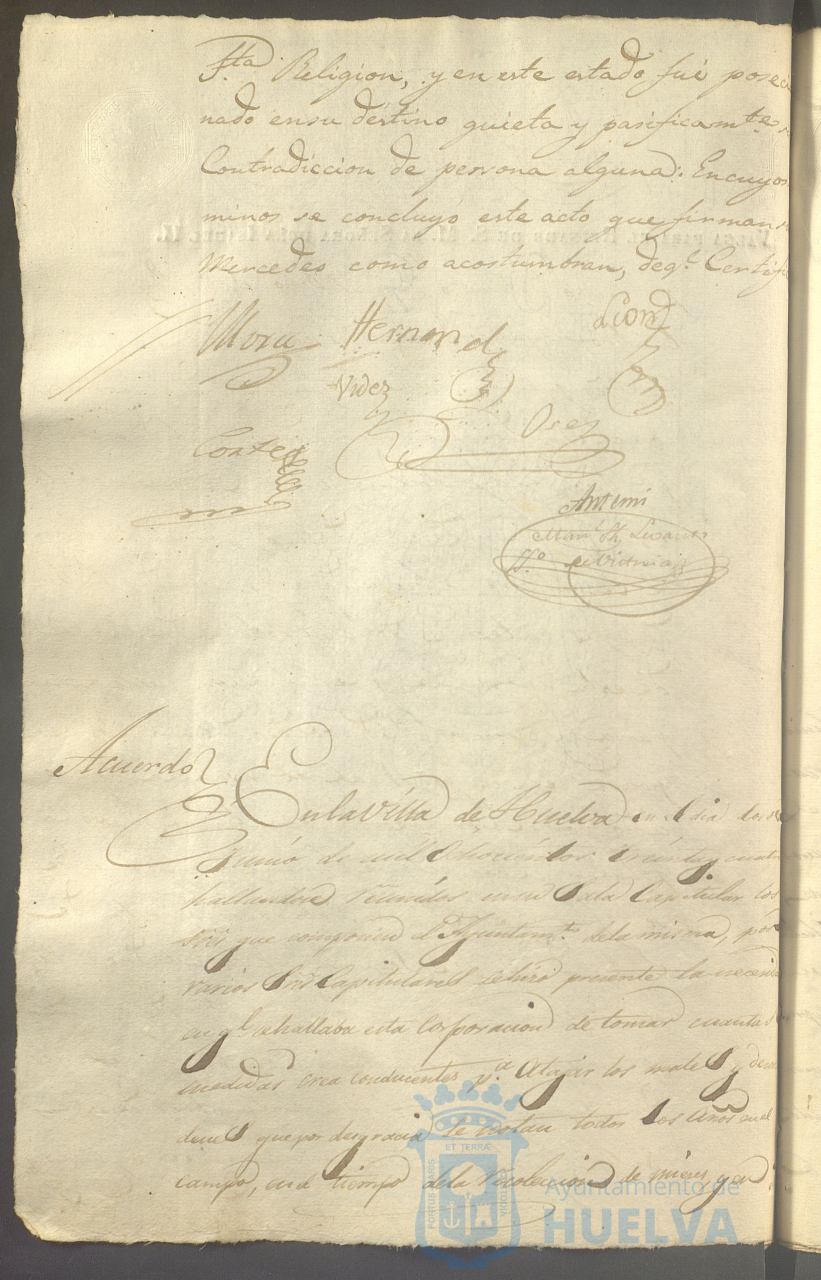 Sta Religion, y en este estado fué posecio
nado en su destino quieta y pasificamte
Contradiccion de persona alguna: En cuyos
minos se concluyó este acto que firman
Mercedes como acostumbran, de qe Certif
Mora Hernand Leon
Videz
Osez
Cortes
Ante mi
Acuerdo
En la Villa de Huelva en el dia dos de
Junio de mil ochocientos treinta y cuatro
hallandose reunidos en su Sala Capitular los
Sres que componen el Ayuntamto de la misma, por
varios Sres Capitulares se hizo presente la necesid
en qe se hallaba esta Corporacion de tomar cuantas
medidas crea conducentes pa atajar los males y
que por desgracia se notan todos los años en el
campo, en el tiempo de la recoleccion de mieses, y en
PORTUS MARIS ET TERRÆ CUSTODIA
Ayuntamiento de
HUELVA